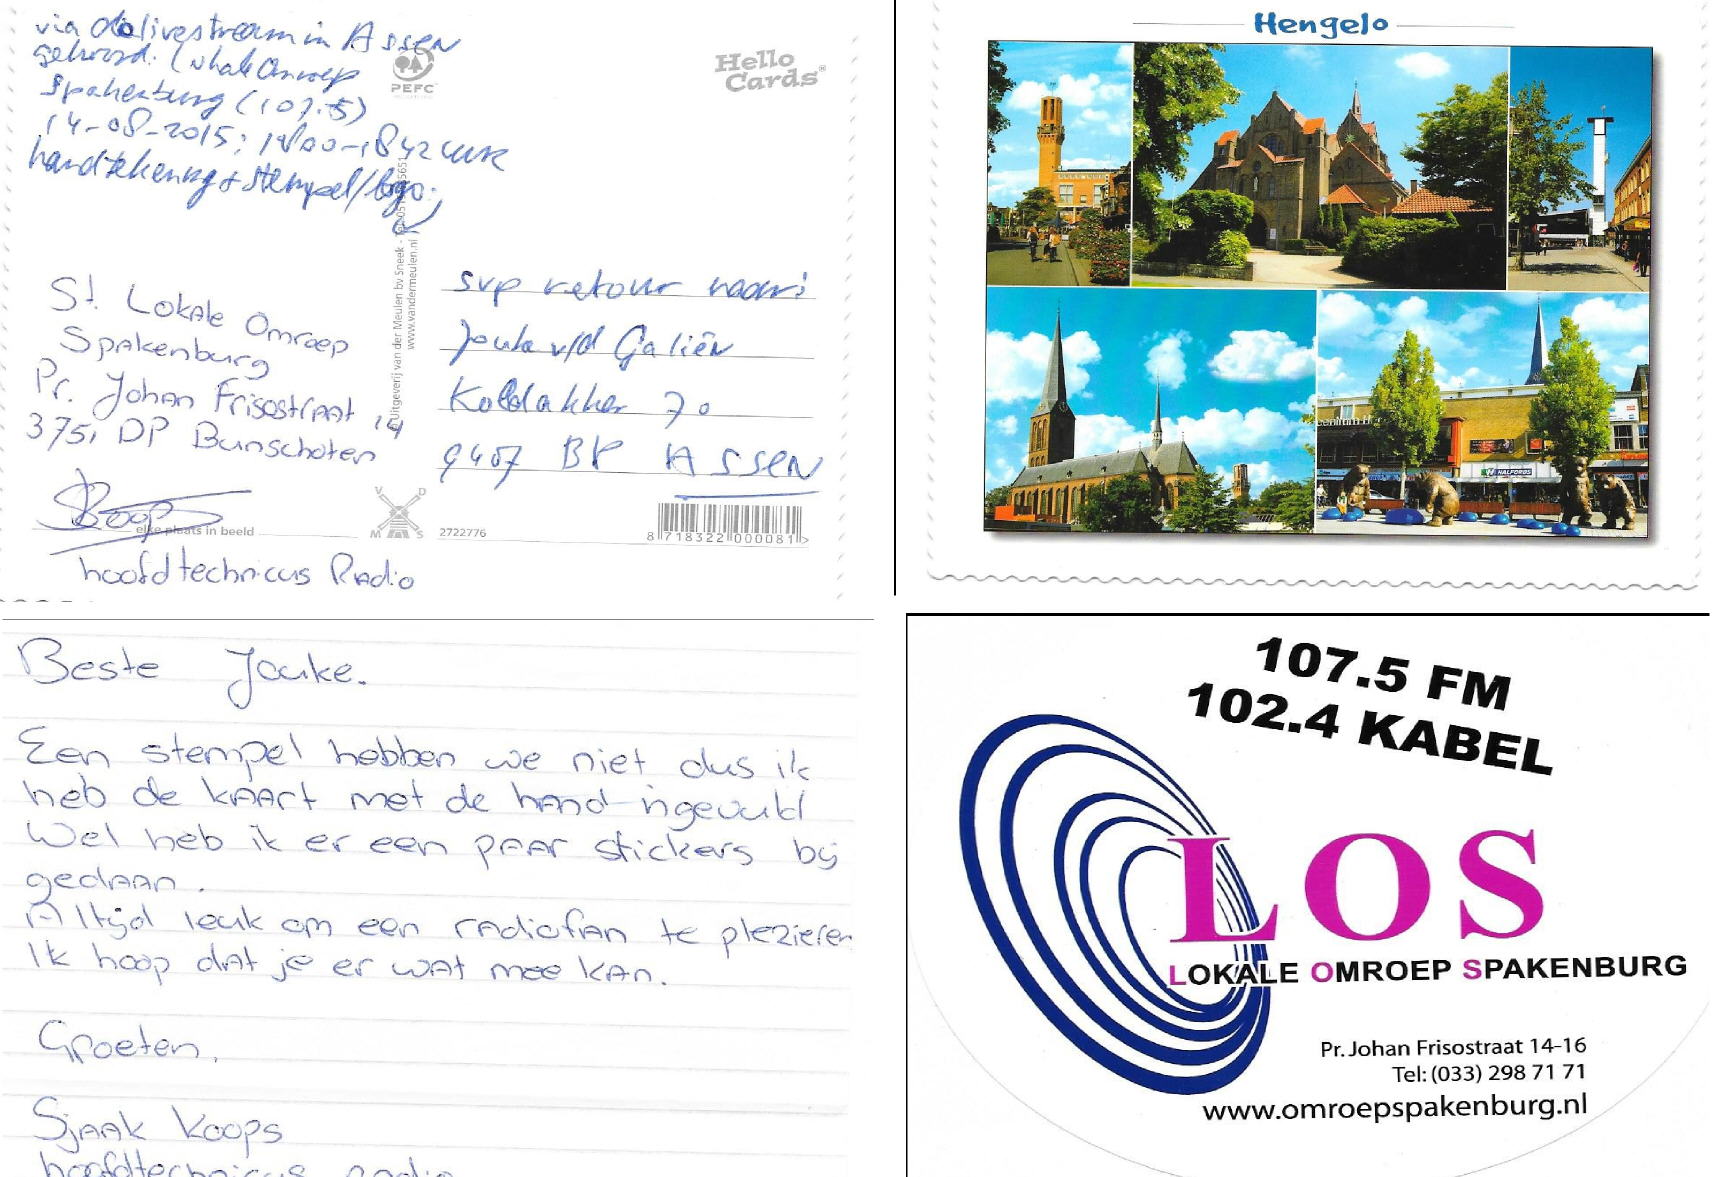 via de livestream in Assen
gehoord: Lokale Omroep
Spakenburg (107.5)
14-08-2015; 18:00-18:42 uur
handtekening + stempel/logo:
PEFC
Hello
Cards®
St. Lokale Omroep
Spakenburg
Pr. Johan Frisostraat 14
3751 DP Bunschoten
hoofdtechnicus Radio
Uitgeverij van der Meulen bv Sneek
www.vandermeulen.nl
svp retour naar:
Jouke v/d Galiën
Koldakker 70
9407 BP ASSEN
elke plaats in beeld
V D
M S
2722776
8 718322 000081 >
Hengelo
HALFORDS
Beste Jouke.
Een stempel hebben we niet dus ik
heb de kaart met de hand ingevuld
Wel heb ik er een paar stickers bij
gedaan.
Altijd leuk om een radiofan te plezieren
Ik hoop dat je er wat mee kan.
Groeten,
Sjaak Koops
hoofdtechnicus radio
107.5 FM
102.4 KABEL
LOS
LOKALE OMROEP SPAKENBURG
Pr. Johan Frisostraat 14-16
Tel: (033) 298 71 71
www.omroepspakenburg.nl